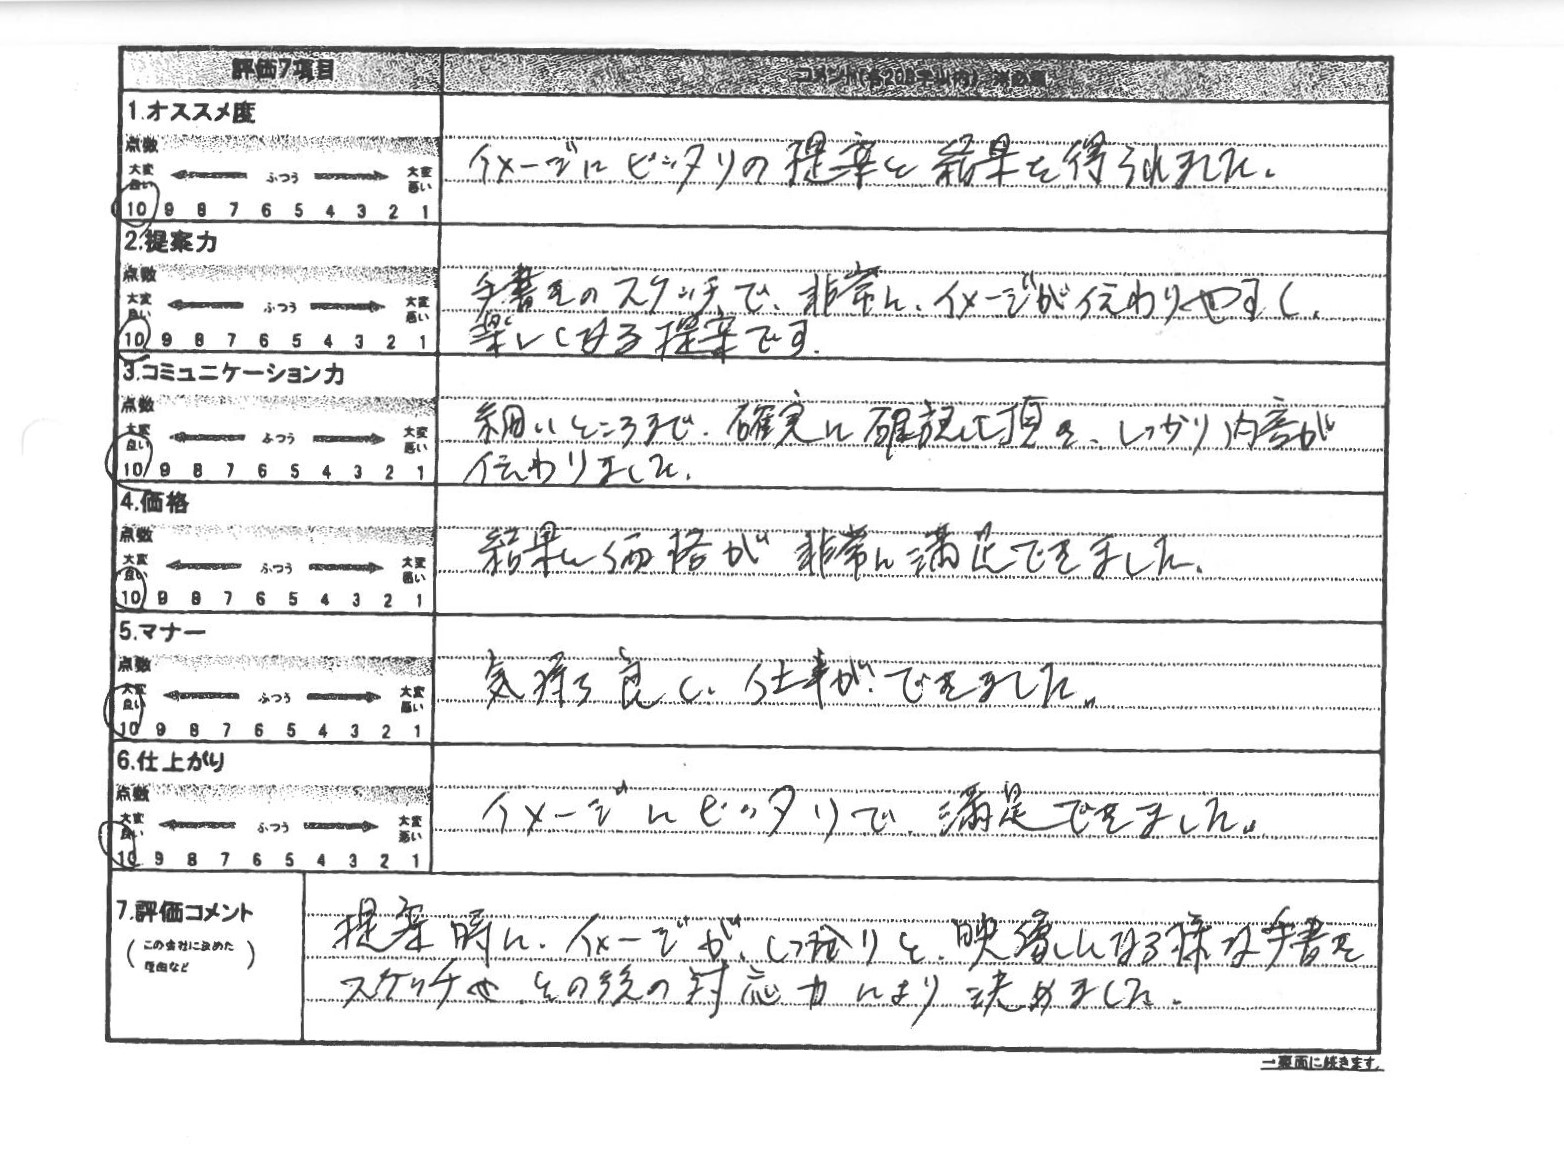 評価7項目
コメント(各200字以内) ※必須
1.オススメ度
点数
大変良い ふつう 大変悪い
10 9 8 7 6 5 4 3 2 1
イメージにピッタリの提案と結果を得られました。
2.提案力
点数
大変良い ふつう 大変悪い
10 9 8 7 6 5 4 3 2 1
手書きのスケッチで、非常に、イメージが伝わりやすく、
楽しくなる提案です.
3.コミュニケーション力
点数
大変良い ふつう 大変悪い
10 9 8 7 6 5 4 3 2 1
細いところまで、確実に確認して頂き、しっかり内容が
伝わりました.
4.価格
点数
大変良い ふつう 大変悪い
10 9 8 7 6 5 4 3 2 1
結果と価格が非常に満足できました.
5.マナー
点数
大変良い ふつう 大変悪い
10 9 8 7 6 5 4 3 2 1
気持ち良く、仕事ができました。
6.仕上がり
点数
大変良い ふつう 大変悪い
10 9 8 7 6 5 4 3 2 1
イメージにピッタリで、満足できました。
7.評価コメント
(この会社に決めた
理由など)
提案時に、イメージが、しっかりと、映像になる様な手書き
スケッチや、その後の対応力により決めました.
→裏面に続きます。